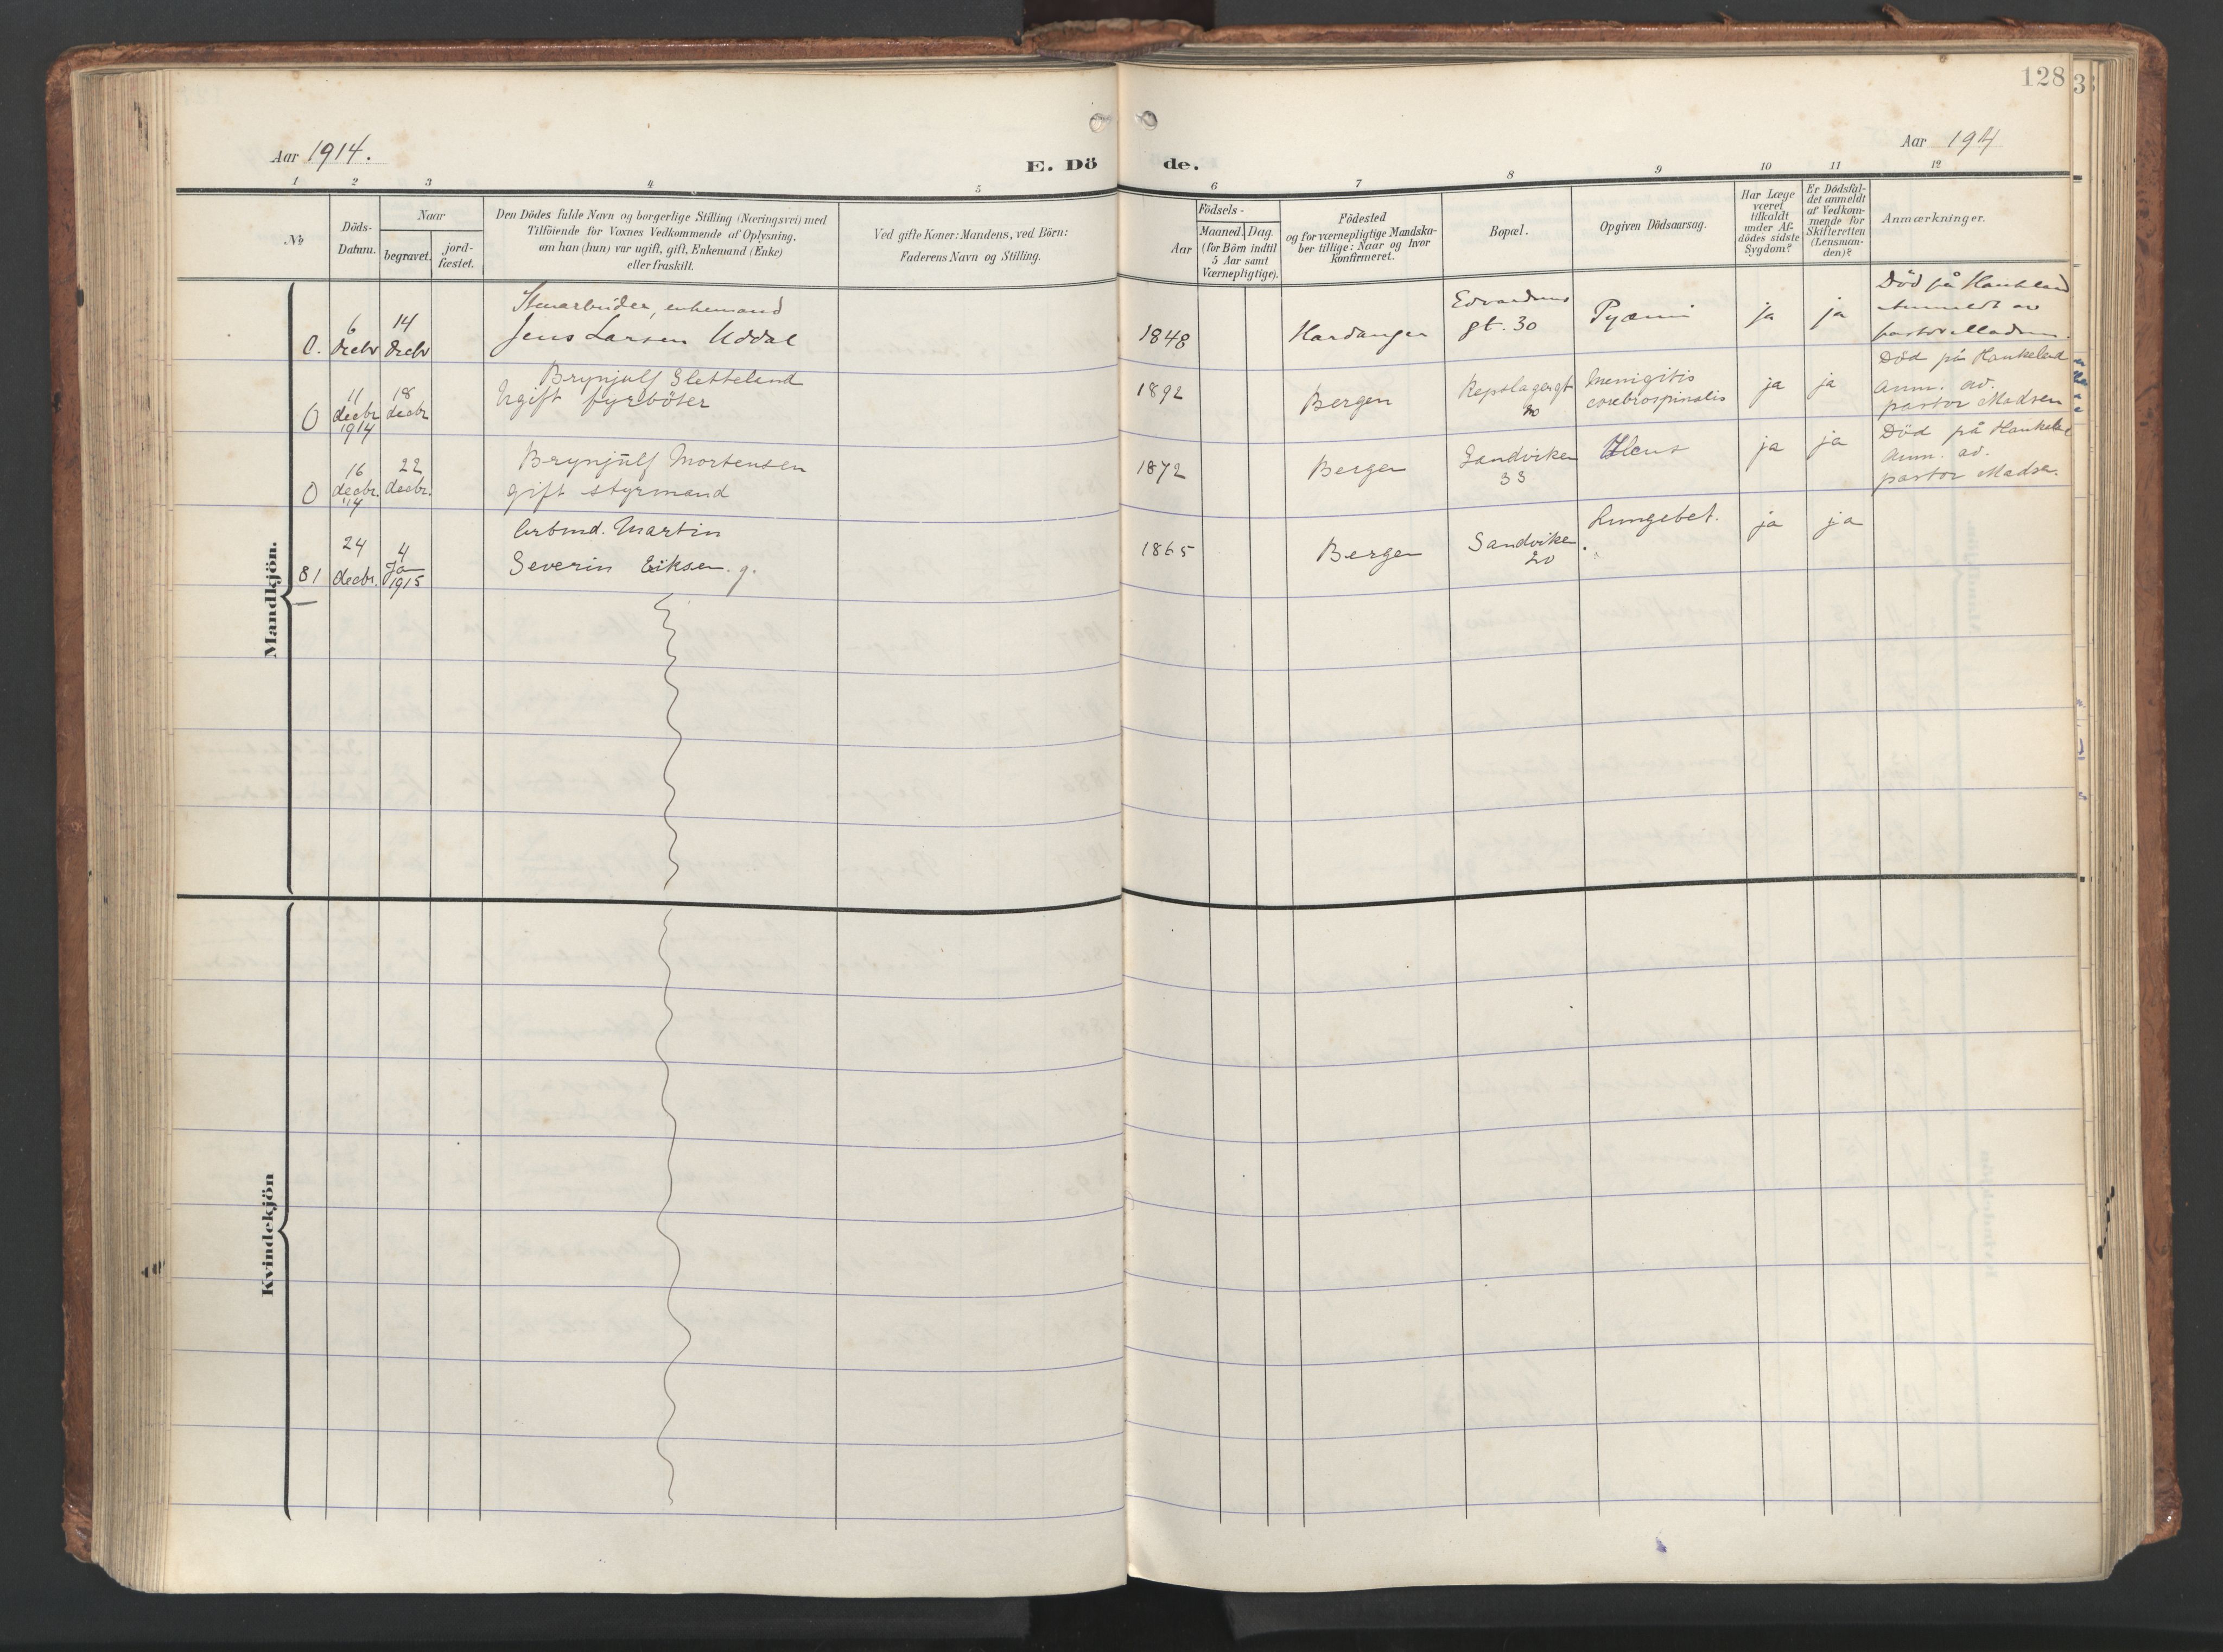 128
Aar 1914.
E. Dö de.
Aar 1914
1 2 3 4 5 6 7 8 9 10 11 12
No
Döds-
Datum.
Naar
begravet.
jord-
fæstet.
Den Dödes fulde Navn og borgerlige Stilling (Næringsvei) med
Tilföiende for Voxnes Vedkommende af Oplysning,
om han (hun) var ugift, gift, Enkemand (Enke)
eller fraskilt.
Ved gifte Koner: Mandens, ved Börn:
Faderens Navn og Stilling.
Födsels-
Aar
Maaned.
Dag.
(for Börn indtil
5 Aar samt
Værnepligtige).
Födested
og for værnepligtige Mandska-
ber tillige: Naar og hvor
konfirmeret.
Bopæl.
Opgiven Dödsaarsag.
Har Læge
været
tilkaldt
under Af-
dödes sidste
Sygdom?
Er Dödsfal-
det anmeldt
af Vedkom-
mende for
Skifteretten
(Lensman-
den)?
Anmærkninger.
Mandkjön.
0.
6
decbr
14
decbr
Stenarbeider, enkemand
Jens Larsen Uddal
1848
Hardanger
Edvardens
gt. 30
Pyæmi
ja
ja
Död på Haukeland
Anmeldt av
pastor Madsen.
0
11
decbr
1914
18
decbr
Brynjulf Sletteland
Ugift fyrböter
1892
Bergen
Repslagergt
20
Menigitis
cerebrospinalis
ja
ja
Död på Haukeland
anm. av.
pastor Madsen
0
16
decbr.
'14
22
decbr.
Brynjulf Mortensen
gift styrmand
1872
Bergen
Sandviken
33
Ulcus
ja
ja
Död på Haukeland
anm. av.
pastor Madsen.
81
24
decbr.
4
Ja
1915
Arbmd. Martin
Severin Eiksen. g.
1865
Bergen
Sandviken
20
Lungebet.
ja
ja
Kvindekjön